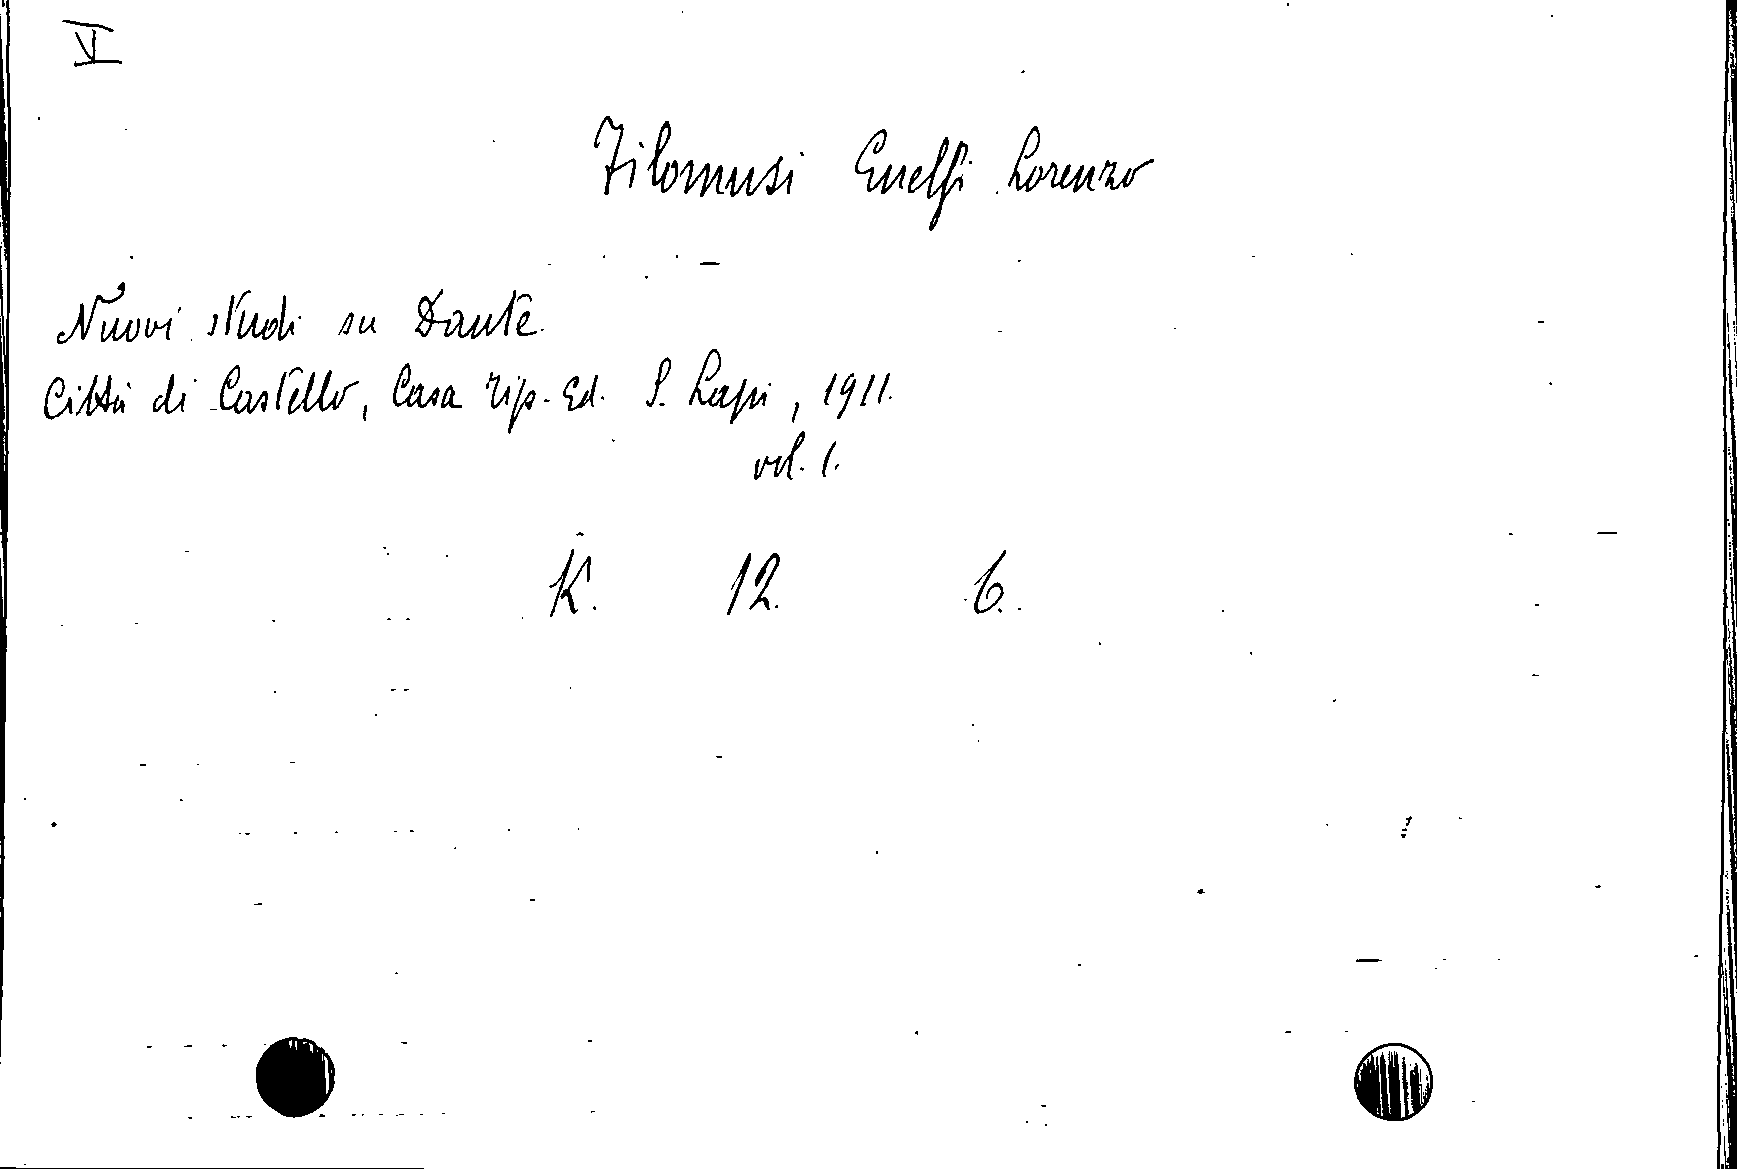 V
Filomusi Guelfi Lorenzo
Nuovi studi su Dante.
Città di Castello, Casa tip. Ed. S. Lapi, 1911.
vol. 1.
K. 12. 6.